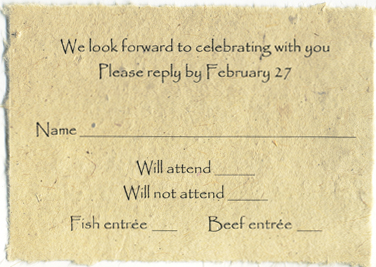 We look forward to celebrating with you
Please reply by February 27
Name ____________________
Will attend _____
Will not attend _____
Fish entrée ___ Beef entrée ___